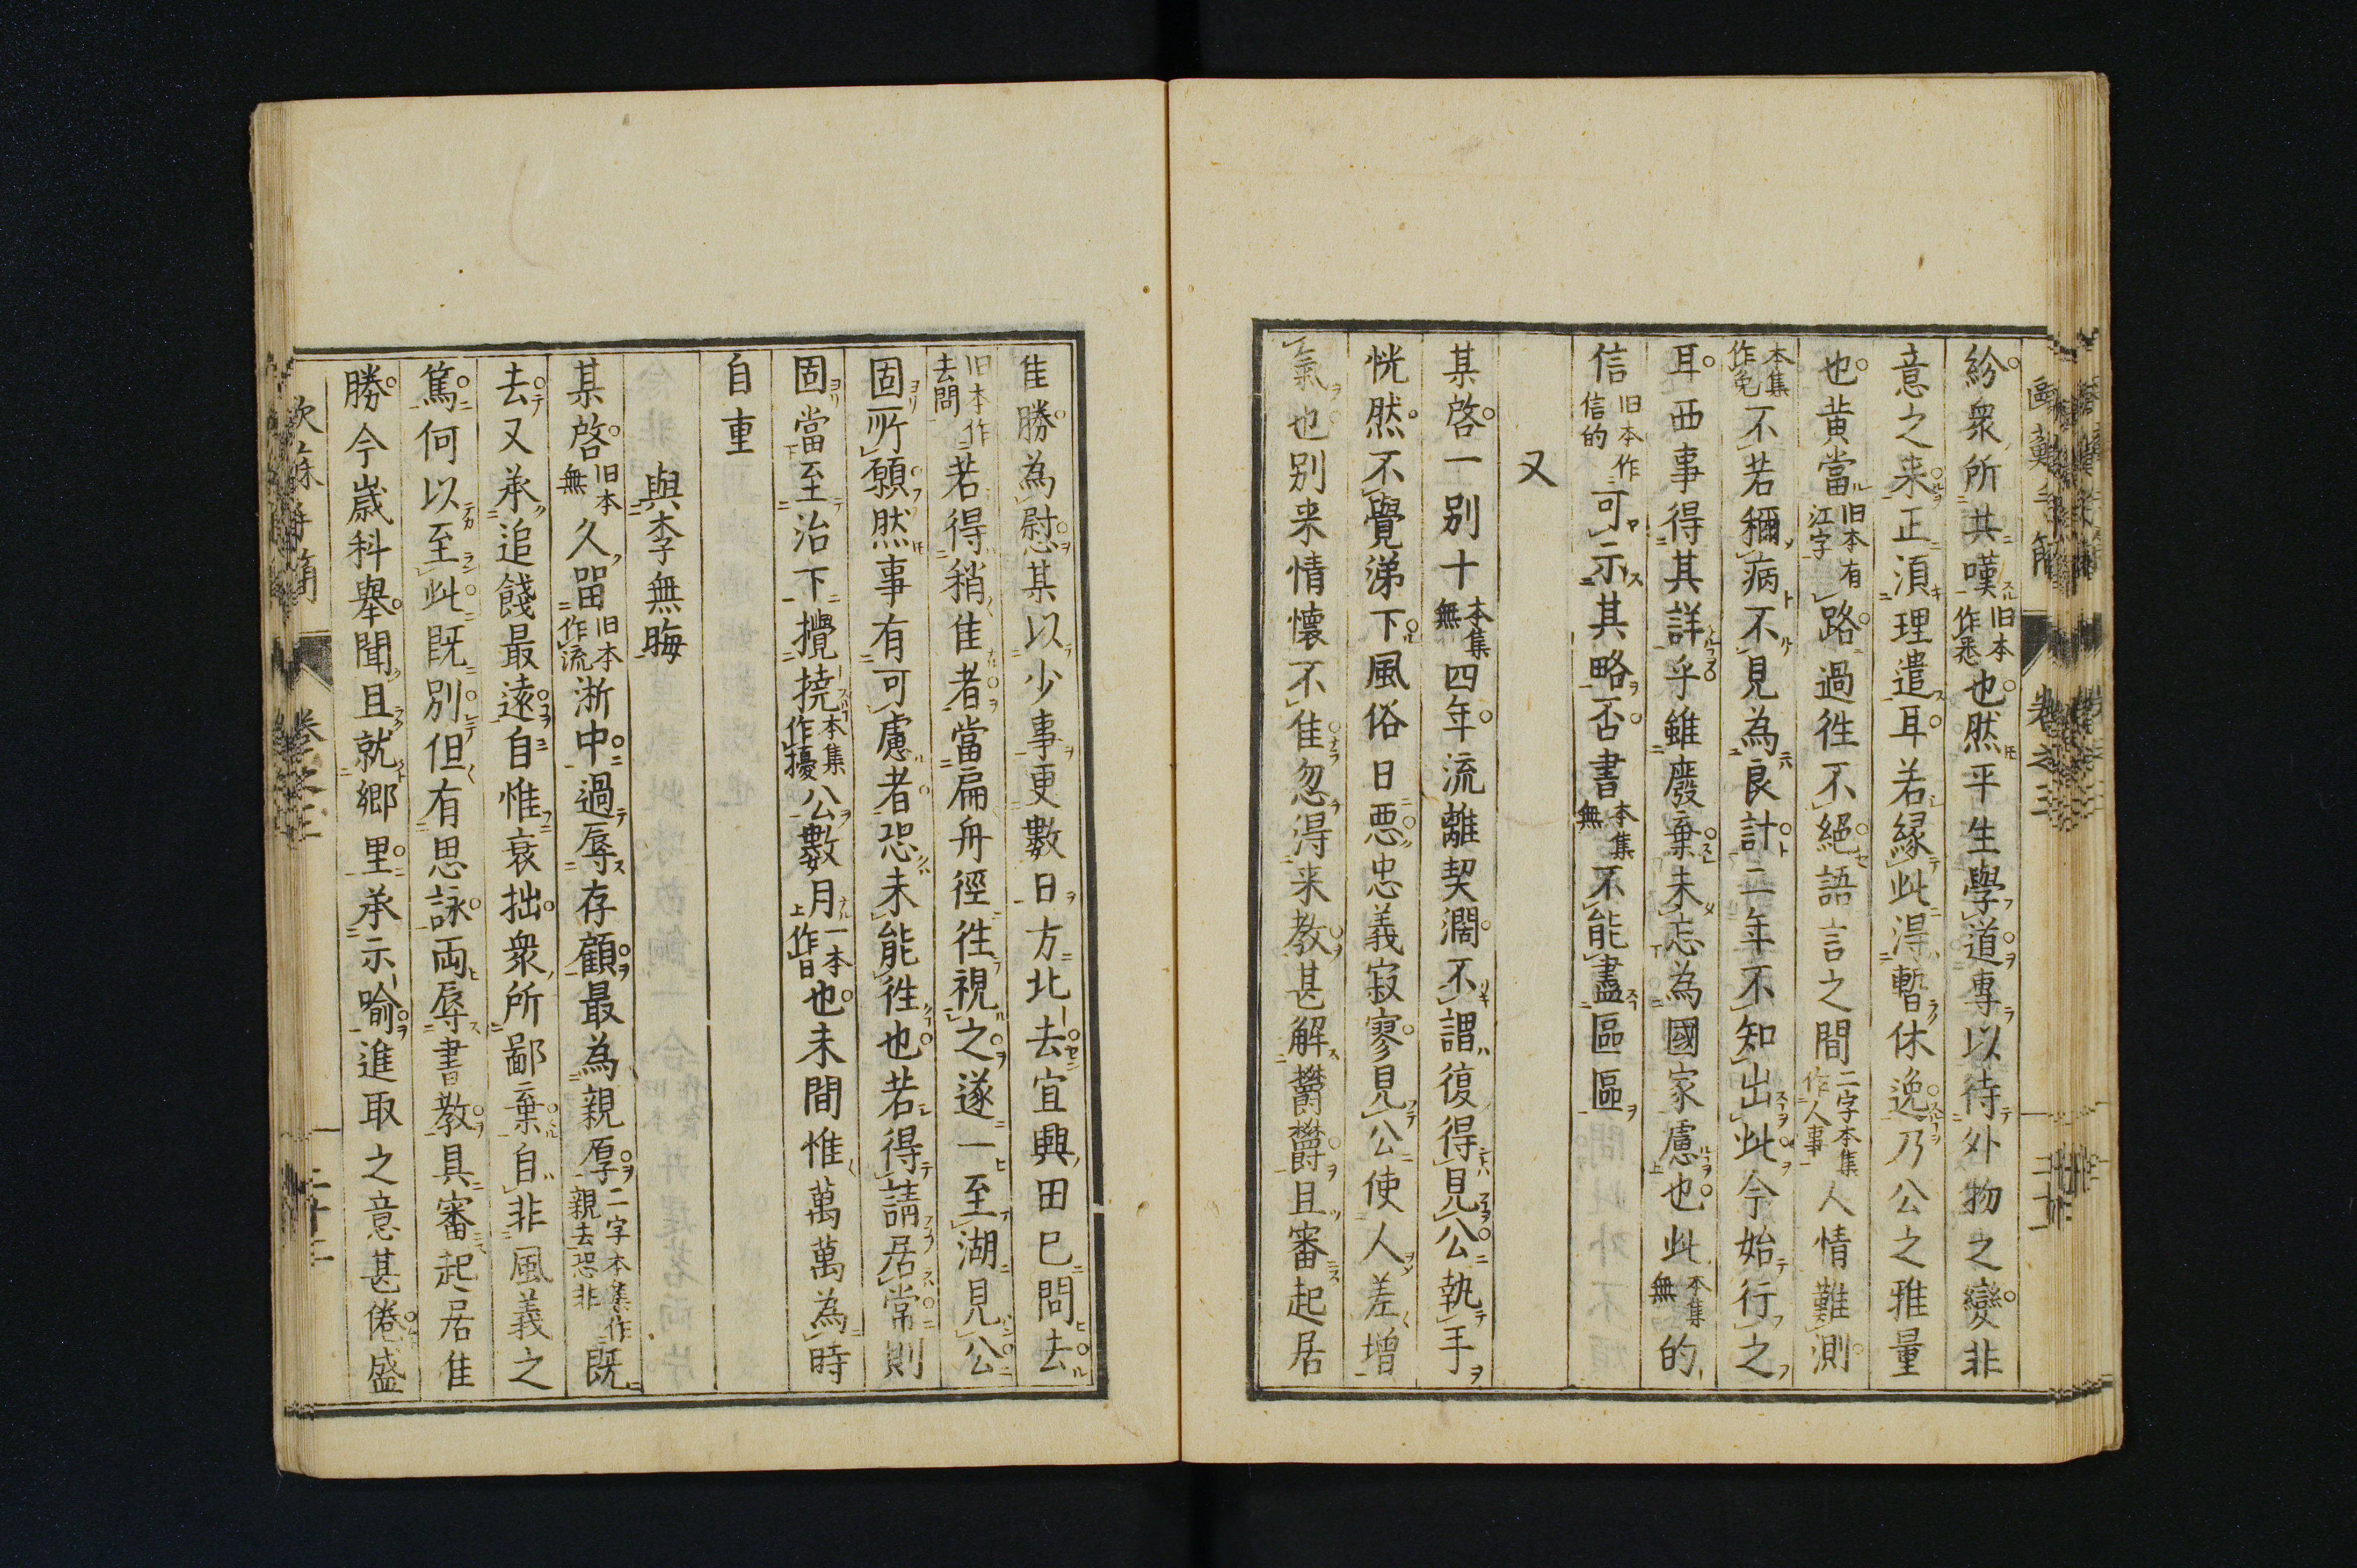 紛衆所共嘆旧本作悉也然平生學道專以待外物之變非
意之来正湏理遣耳若縁此得暫休逸乃公之雅量
也黄當旧本有江字路過徃不絕語言之間二字本集作人事人情難測
本集作免不若稱病不見為良計二年不知出此今始行之
耳西事得其詳乎雖廢棄未忘為國家慮也此本集無的
信旧本作信的可示其略否書本集無不能盡區區
又
某啓一別十本集無四年流離契濶不謂復得見公執手
恍然不覺涕下風俗日悪忠義寂寥見公使人差増
氣也別来情懷不佳忽得来教甚解欝欝且審起居
佳勝為慰某以少事更數日方北去宜興田已問去
旧本作去問若得稍佳者當扁舟徑徃視之遂一至湖見公
固所願然事有可慮者恐未能徃也若得請居常則
固當至治下攪撓本集作擾公數月一本作日也未間惟萬萬為時
自重
與李無晦
某啓旧本無久留旧本作流浙中過辱存顧最為親厚二字本集作親去恐非既
去又承追餞最遠自惟衰拙衆所鄙棄自非風義之
篤何以至此既別但有思詠両辱書教具審起居佳
勝今歳科舉聞且就郷里承示喻進取之意甚倦盛
卷之三